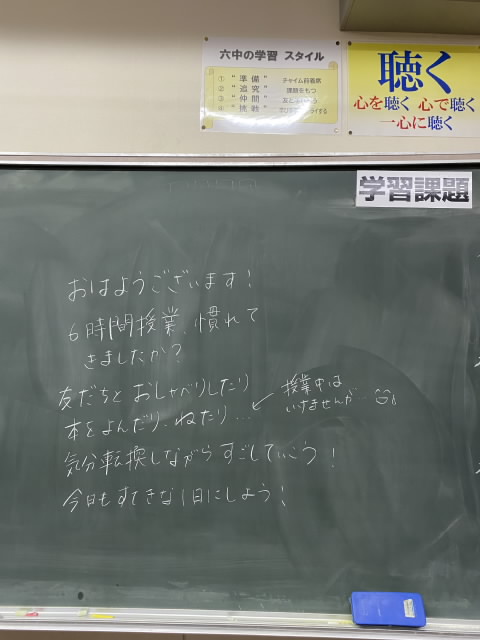 六中の学習 スタイル
① "準備" チャイム前着席
② "追究" 課題をもつ
③ "仲間"
④ "挑戦"
聴く
心を聴く 心で聴く
一心に聴く
学習課題
おはようございます!
6時間授業、慣れて
きましたか?
友だちと おしゃべりしたり
本をよんだり、ねたり…
授業中は
いけませんが…
気分転換しながら すごしていこう!
今日もすてきな1日にしよう!